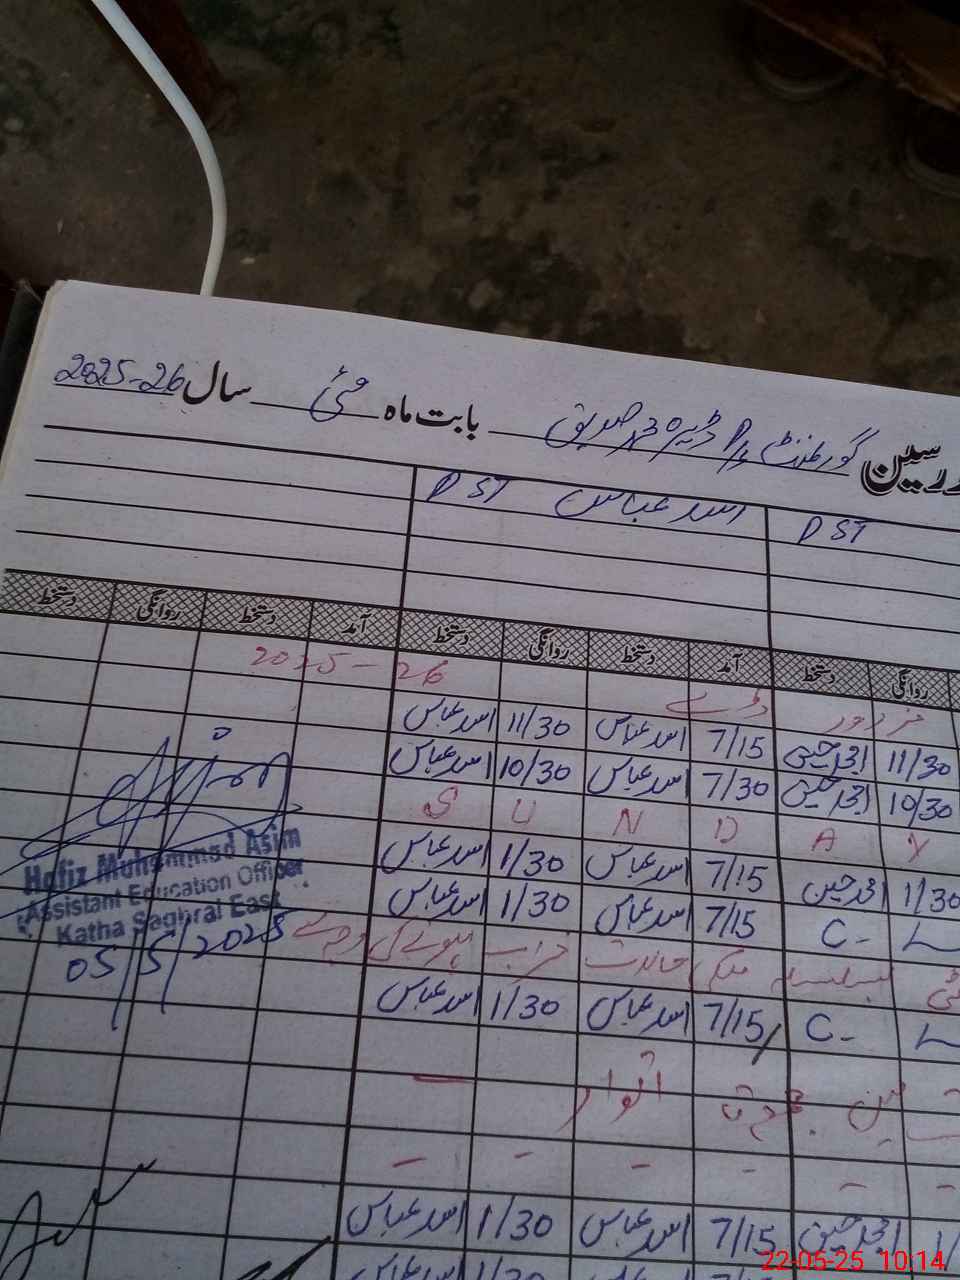 رسین گورنمنٹ P/S ڈیرہ محمد صدیق بابت ماہ مئی سال 2025-26
PST اسد عباس PST
روانگی دستخط آمد دستخط روانگی دستخط آمد دستخط روانگی دستخط
مزدور ڈے 2025-26
11/30 7/15 اسد عباس 11/30 اسد عباس
10/30 7/30 اسد عباس 10/30 اسد عباس
S U N D A Y
1/30 7/15 اسد عباس 1/30 اسد عباس
C- L 7/15 اسد عباس 1/30 اسد عباس
بسلسلہ ملکی حالات خراب ہونے کی وجہ سے
C- L 7/15 اسد عباس 1/30 اسد عباس
اتوار
7/15 اسد عباس 1/30 اسد عباس
Hafiz Muhammad Asim
Assistant Education Officer
Katha Saghral East
05/5/2025
22-05-25 10:14